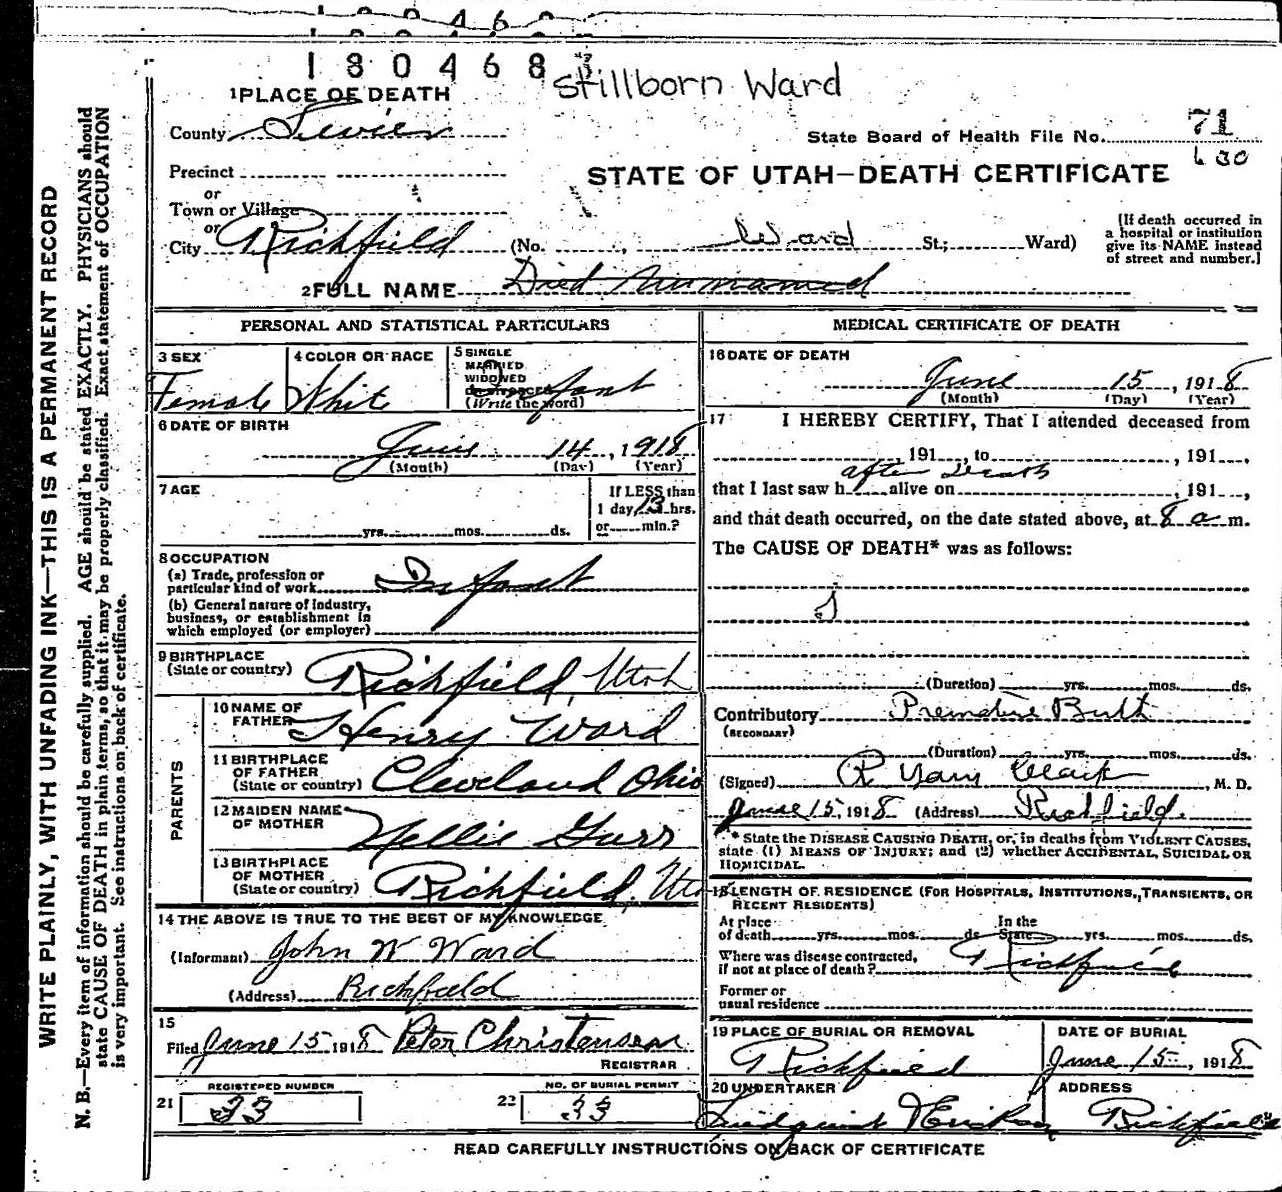 1 8 0 4 6 8
stillborn Ward
1 PLACE OF DEATH
County Sevier
State Board of Health File No. 71
630
Precinct
or
Town or Village
or
City Richfield (No. , Ward St.; Ward)
STATE OF UTAH—DEATH CERTIFICATE
[If death occurred in
a hospital or institution
give its NAME instead
of street and number.]
2 FULL NAME Died Unnamed
PERSONAL AND STATISTICAL PARTICULARS
3 SEX
Female
4 COLOR OR RACE
White
5 SINGLE
MARRIED
WIDOWED
OR DIVORCED
(Write the word)
Infant
6 DATE OF BIRTH
June 14, 1918
(Month) (Day) (Year)
7 AGE
yrs. mos. ds.
If LESS than
1 day 13 hrs.
or min.?
8 OCCUPATION
(a) Trade, profession or
particular kind of work Infant
(b) General nature of Industry,
business, or establishment in
which employed (or employer)
9 BIRTHPLACE
(State or country) Richfield, Utah
PARENTS
10 NAME OF
FATHER Henry Ward
11 BIRTHPLACE
OF FATHER
(State or country) Cleveland Ohio
12 MAIDEN NAME
OF MOTHER Nellie Gurr
13 BIRTHPLACE
OF MOTHER
(State or country) Richfield, Uta
14 THE ABOVE IS TRUE TO THE BEST OF MY KNOWLEDGE
(Informant) John W Ward
(Address) Richfield
15
Filed June 15 1918 Peter Christensen
REGISTRAR
REGISTERED NUMBER
21 33
NO. OF BURIAL PERMIT
22 33
MEDICAL CERTIFICATE OF DEATH
16 DATE OF DEATH
June 15, 1918
(Month) (Day) (Year)
17 I HEREBY CERTIFY, That I attended deceased from
, 191 , to , 191 ,
after Death
that I last saw h alive on , 191 ,
and that death occurred, on the date stated above, at 8 a m.
The CAUSE OF DEATH* was as follows:
(Duration) yrs. mos. ds.
Contributory Premature Birth
(SECONDARY)
(Duration) yrs. mos. ds.
(Signed) R Clark, M. D.
June 15, 1918 (Address) Richfield.
* State the DISEASE CAUSING DEATH, or, in deaths from VIOLENT CAUSES,
state (1) MEANS OF INJURY; and (2) whether ACCIDENTAL, SUICIDAL OR
HOMICIDAL.
18 LENGTH OF RESIDENCE (FOR HOSPITALS, INSTITUTIONS, TRANSIENTS, OR
RECENT RESIDENTS)
At place
of death yrs. mos. ds.
In the
State yrs. mos. ds.
Where was disease contracted,
if not at place of death? Richfield
Former or
usual residence
19 PLACE OF BURIAL OR REMOVAL
Richfield
DATE OF BURIAL
June 15, 1918
20 UNDERTAKER
ADDRESS
Richfield
READ CAREFULLY INSTRUCTIONS ON BACK OF CERTIFICATE
WRITE PLAINLY, WITH UNFADING INK—THIS IS A PERMANENT RECORD
N. B.—Every item of information should be carefully supplied. AGE should be stated EXACTLY. PHYSICIANS should
state CAUSE OF DEATH in plain terms, so that it may be properly classified. Exact statement of OCCUPATION
is very important. See instructions on back of certificate.